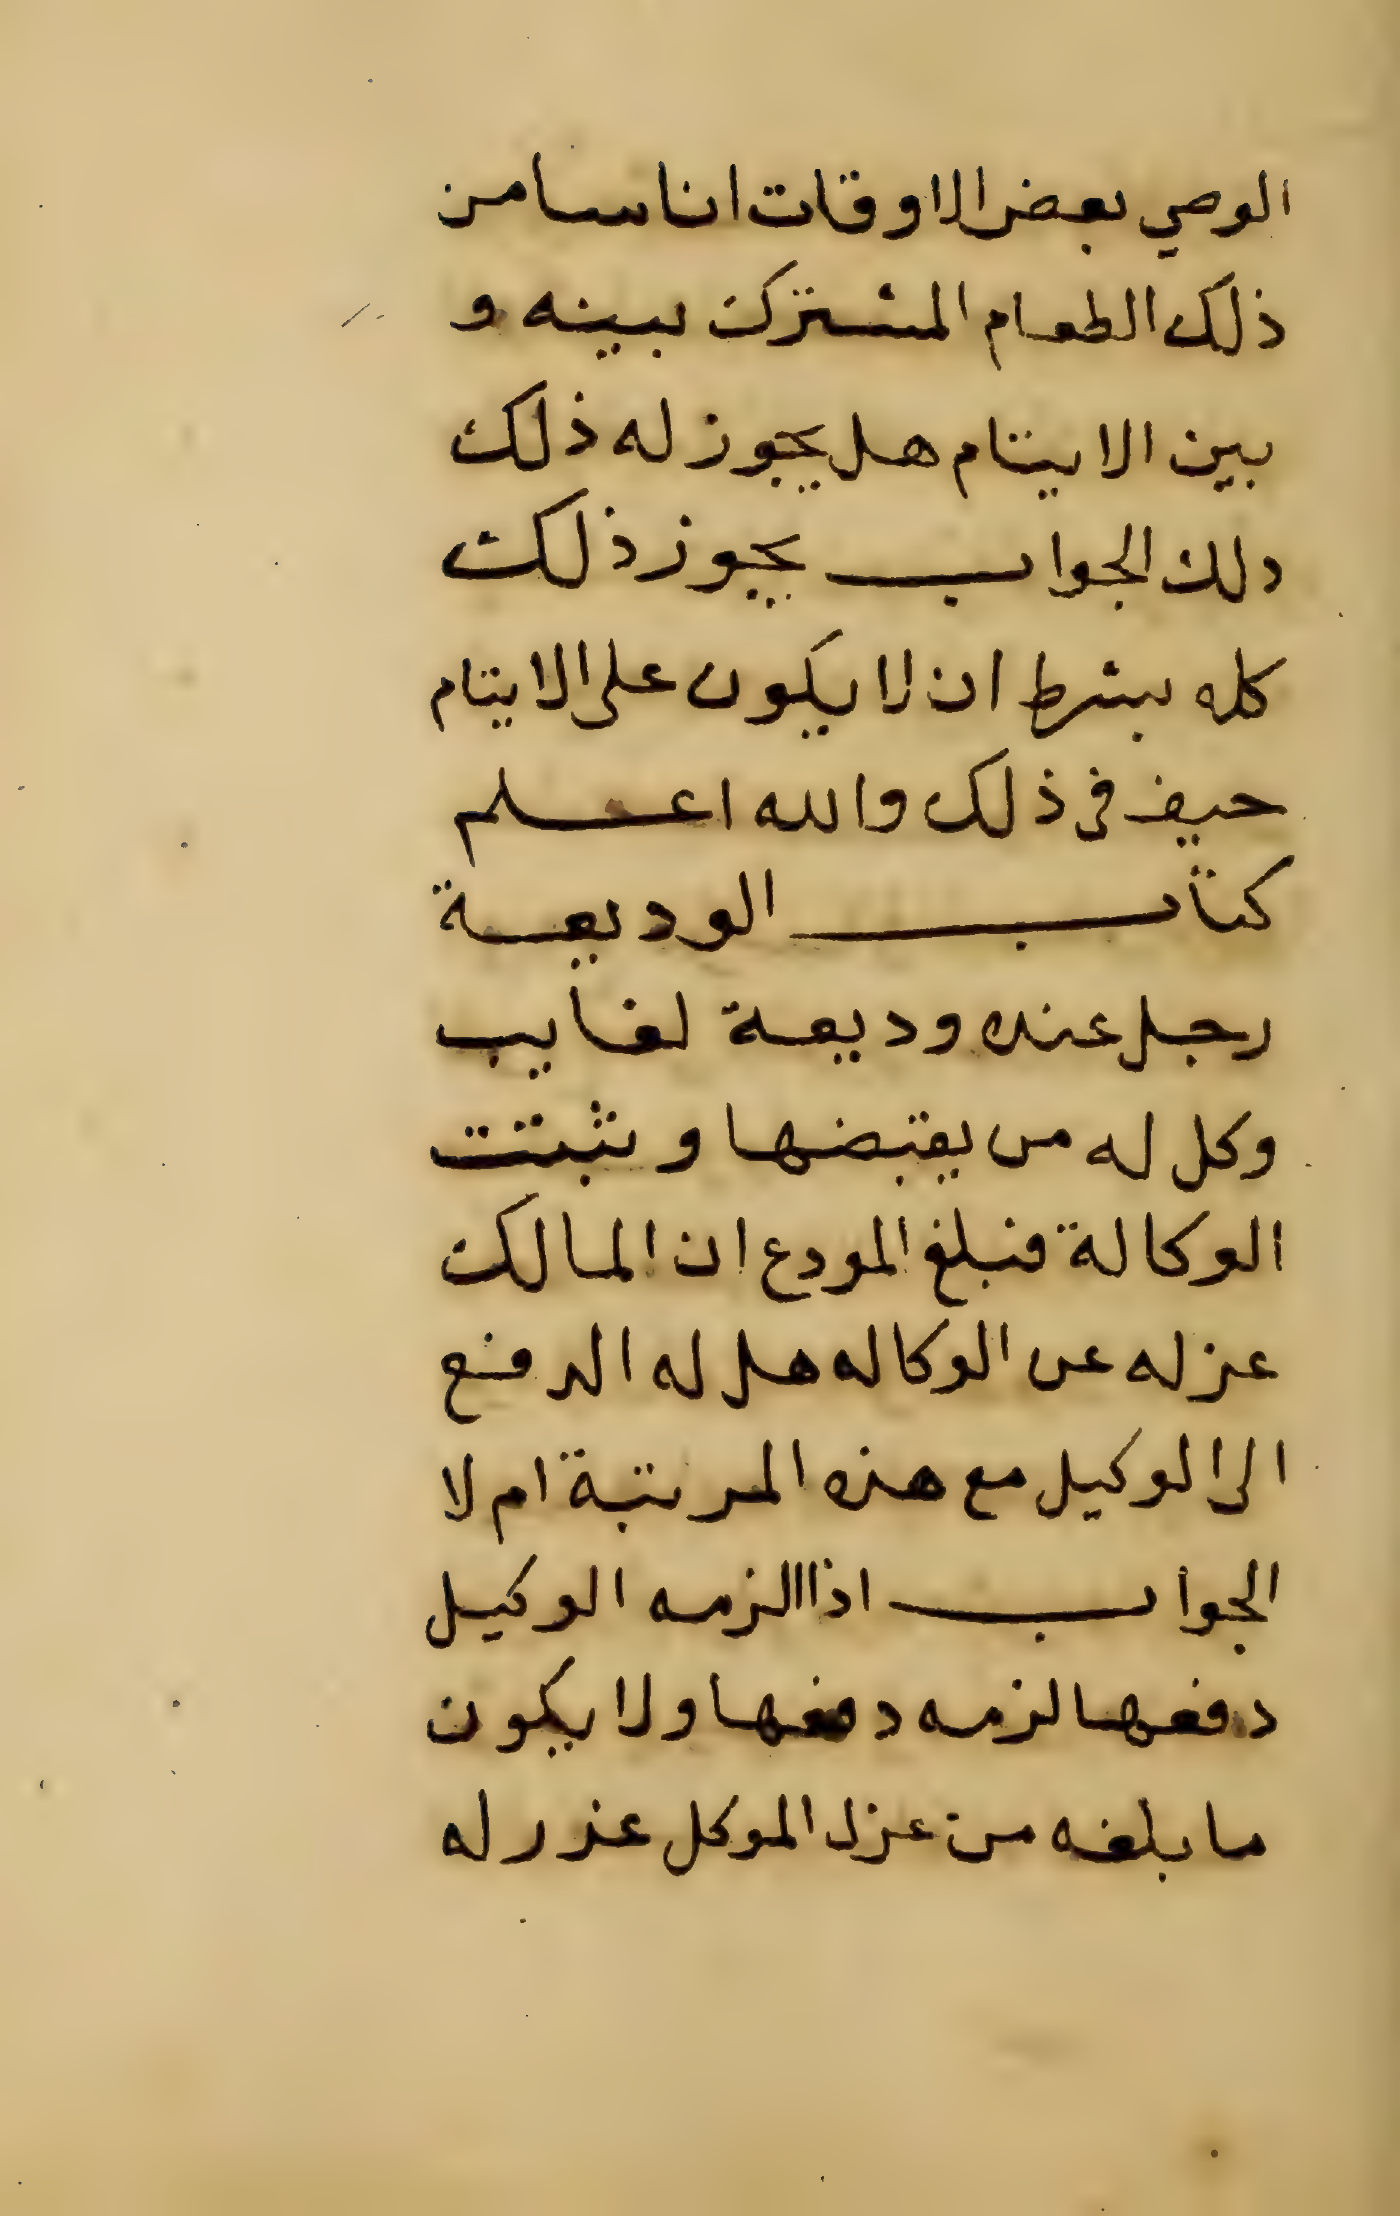 الوصي بعض الاوقات اناسا من
ذلك الطعام المشترك بينه و
بين الايتام هل يجوز له ذلك
دلك الجواب يجوز ذلك
كله بشرط ان لا يكون على الايتام
حيف في ذلك والله اعلم
كتاب الوديعة
رجل عنده وديعة لغايب
وكل له من يقبضها وثبتت
الوكالة فبلغ المودع ان المالك
عزله عن الوكاله هل له الدفع
الى الوكيل مع هذه المرتبة ام لا
الجواب اذا الزمه الوكيل
دفعها لزمه دفعها ولا يكون
ما بلغه من عزل الموكل عذر له